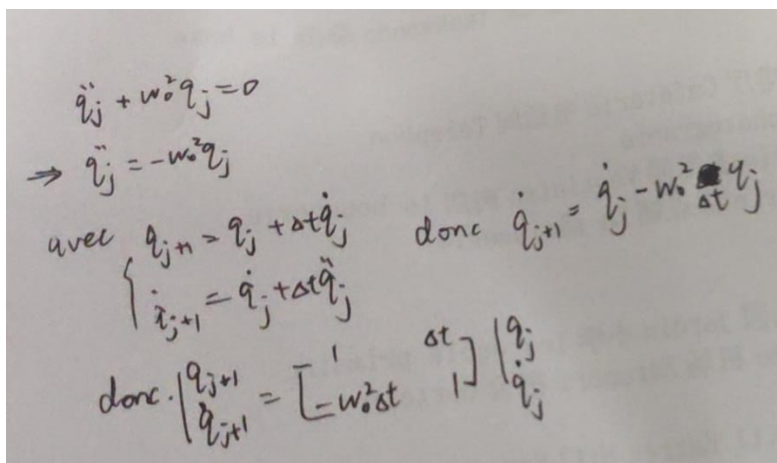 q̈_j + w₀² q_j = 0
⇒ q̈_j = -w₀² q_j
avec { q_{j+1} = q_j + Δt q̇_j
q̇_{j+1} = q̇_j + Δt q̈_j
donc q̇_{j+1} = q̇_j - w₀² Δt q_j
donc. | q_{j+1} q̇_{j+1} = [ 1 Δt -w₀²Δt 1 ] | q_j q̇_j